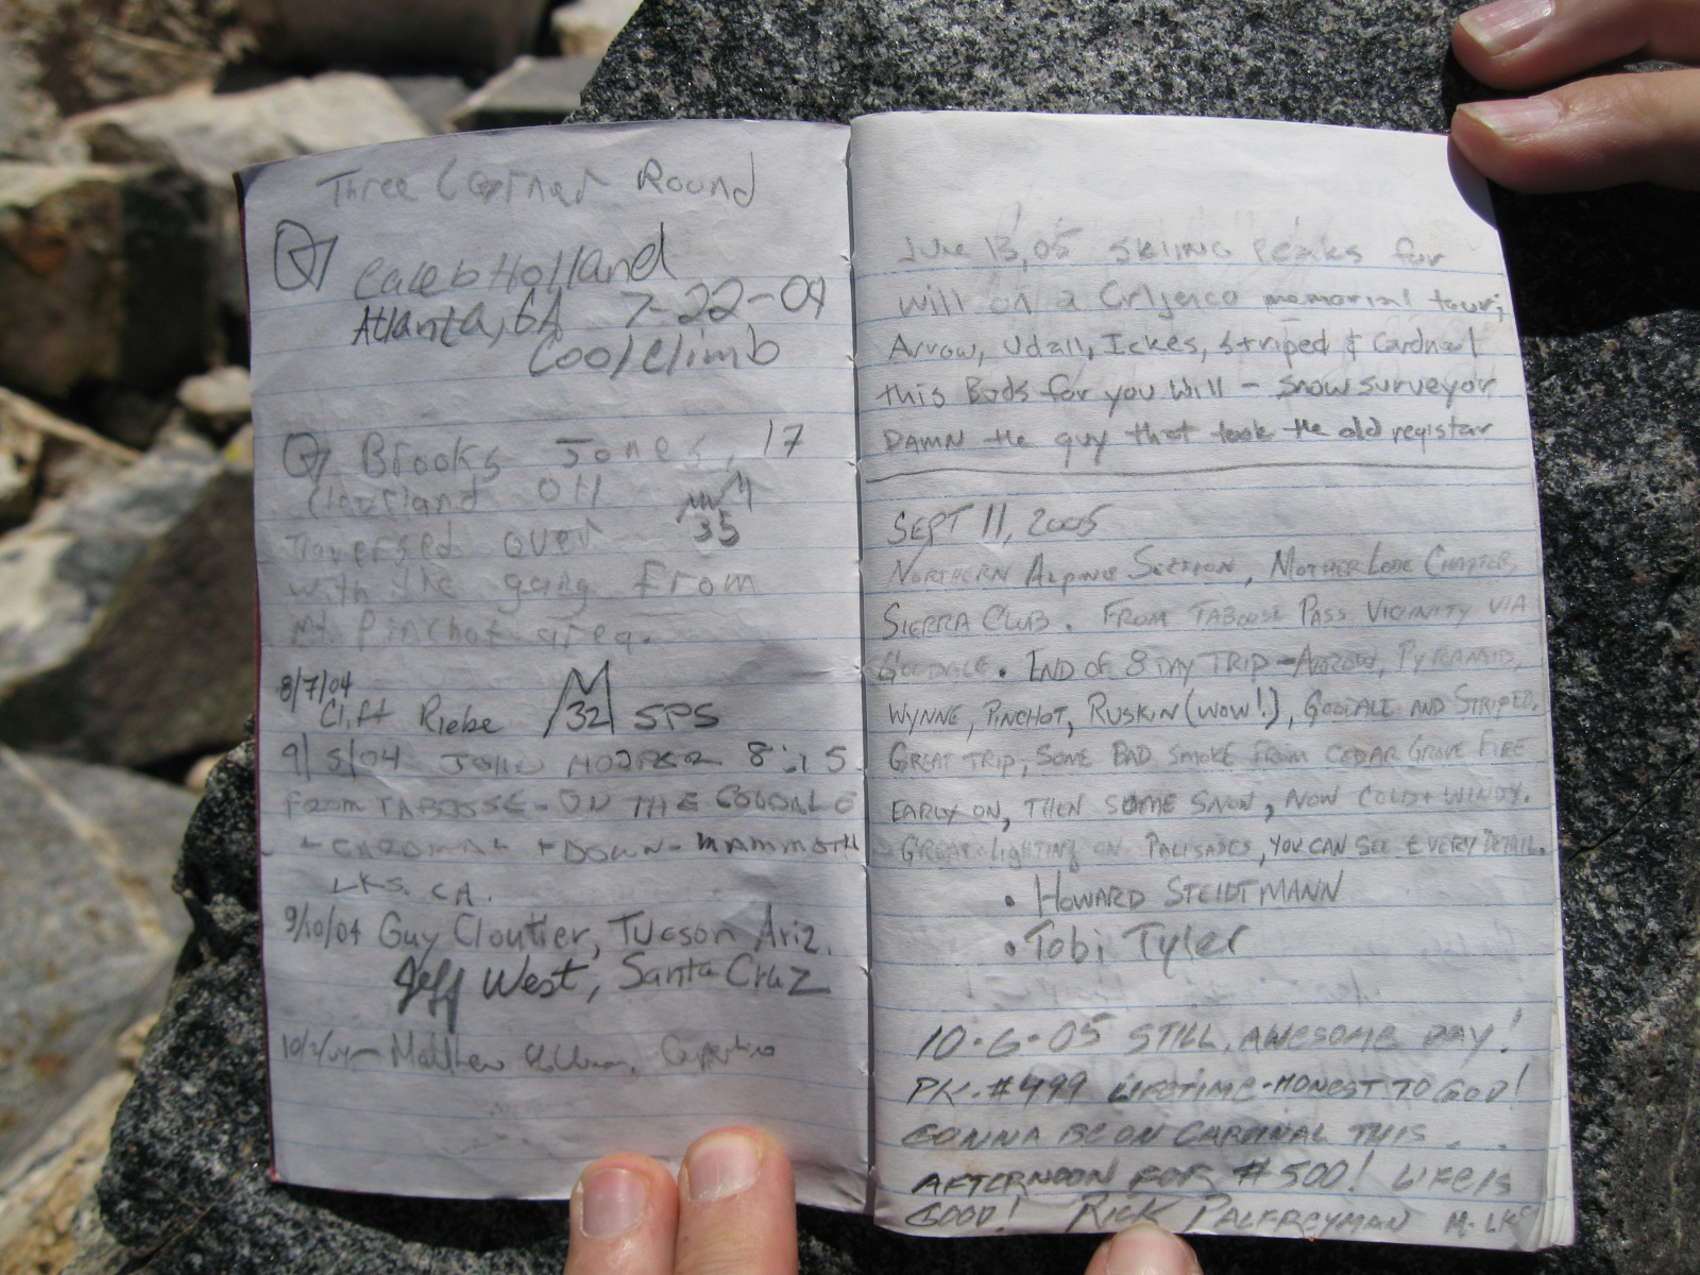 Three Corner Round
Caleb Holland
Atlanta, GA 7-22-04
Cool climb
Brooks Jones, 17
Cleveland OH
35
Traversed over
with the gang From
Mt. Pinchot area.
8/7/04
Cliff Riebe 32 SPS
9/5/04 JOHN HOOPER 8:15
From TABOOSE - ON THE GOODALE
+ CARDINAL + DOWN - MAMMOTH
LKS. CA.
9/10/04 Guy Cloutier, Tucson Ariz.
Jeff West, Santa Cruz
Matthew Cupertino
June 13, 05 skiing Peaks for
Will on a memorial tour;
Arrow, Udall, Ickes, striped & Cardnal
this Buds for you Will - snow surveyor
DAMN the guy that took the old registar
SEPT 11, 2005
NORTHERN Alpine Section, MOTHER LODE CHAPTER,
SIERRA CLUB. FROM TABOOSE PASS VICINITY VIA
GOODALE. END OF 8 DAY TRIP - ARROW, PYRAMID,
WYNNE, PINCHOT, RUSKIN (WOW!), GOODALE AND STRIPED.
GREAT TRIP, SOME BAD SMOKE FROM CEDAR GROVE FIRE
EARLY ON, THEN SOME SNOW, NOW COLD + WINDY.
GREAT lighting ON PALISADES, YOU CAN SEE EVERY DETAIL.
• HOWARD STEIDTMANN
• Tobi Tyler
10-6-05 STILL, AWESOME DAY!
PK. #499 LIFETIME - HONEST TO GOD!
GONNA BE ON CARDINAL THIS
AFTERNOON FOR #500! LIFE IS
GOOD! RICK PALFREYMAN M. LKS